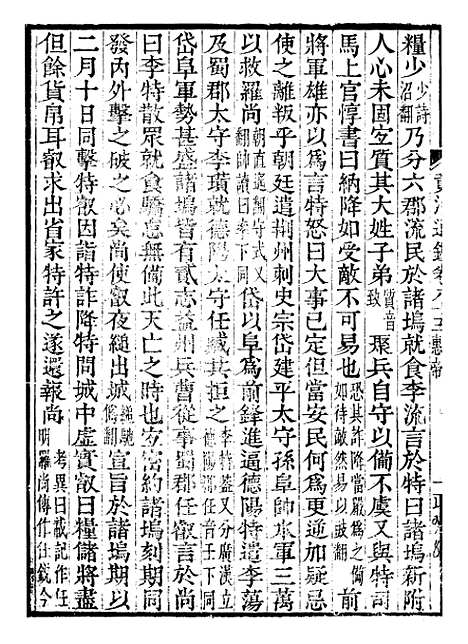 糧少少詩沼翻乃分六郡流民於諸塢就食李流言於特曰諸塢新附
人心未固宜質其大姓子弟質音致聚兵自守以備不虞又與特司
馬上官惇書曰納降如受敵不可易也恐其詐降當嚴爲之備如待敵然易以豉翻前
將軍雄亦以爲言特怒曰大事已定但當安民何爲更逆加疑忌
使之離叛乎朝廷遣荆州刺史宗岱建平太守孫阜帥水軍三萬
以救羅尚朝直遙翻守式又翻帥讀曰率下同岱以阜爲前鋒進逼德陽特遣李蕩
及蜀郡太守李璜就德陽太守任臧共拒之李特蓋又分廣漢立德陽郡任音壬下同
岱阜軍勢甚盛諸塢皆有貳志益州兵曹從事蜀郡任叡言於尚
曰李特散眾就食驕怠無備此天亡之時也宜密約諸塢刻期同
發內外擊之破之必矣尚使叡夜縋出城宣旨於諸塢期以
二月十日同擊特叡因詣特詐降特問城中虛實叡曰糧儲將盡
但餘貨帛耳叡求出省家特許之遂還報尚考異曰載記作任明羅尚傳作任銳今